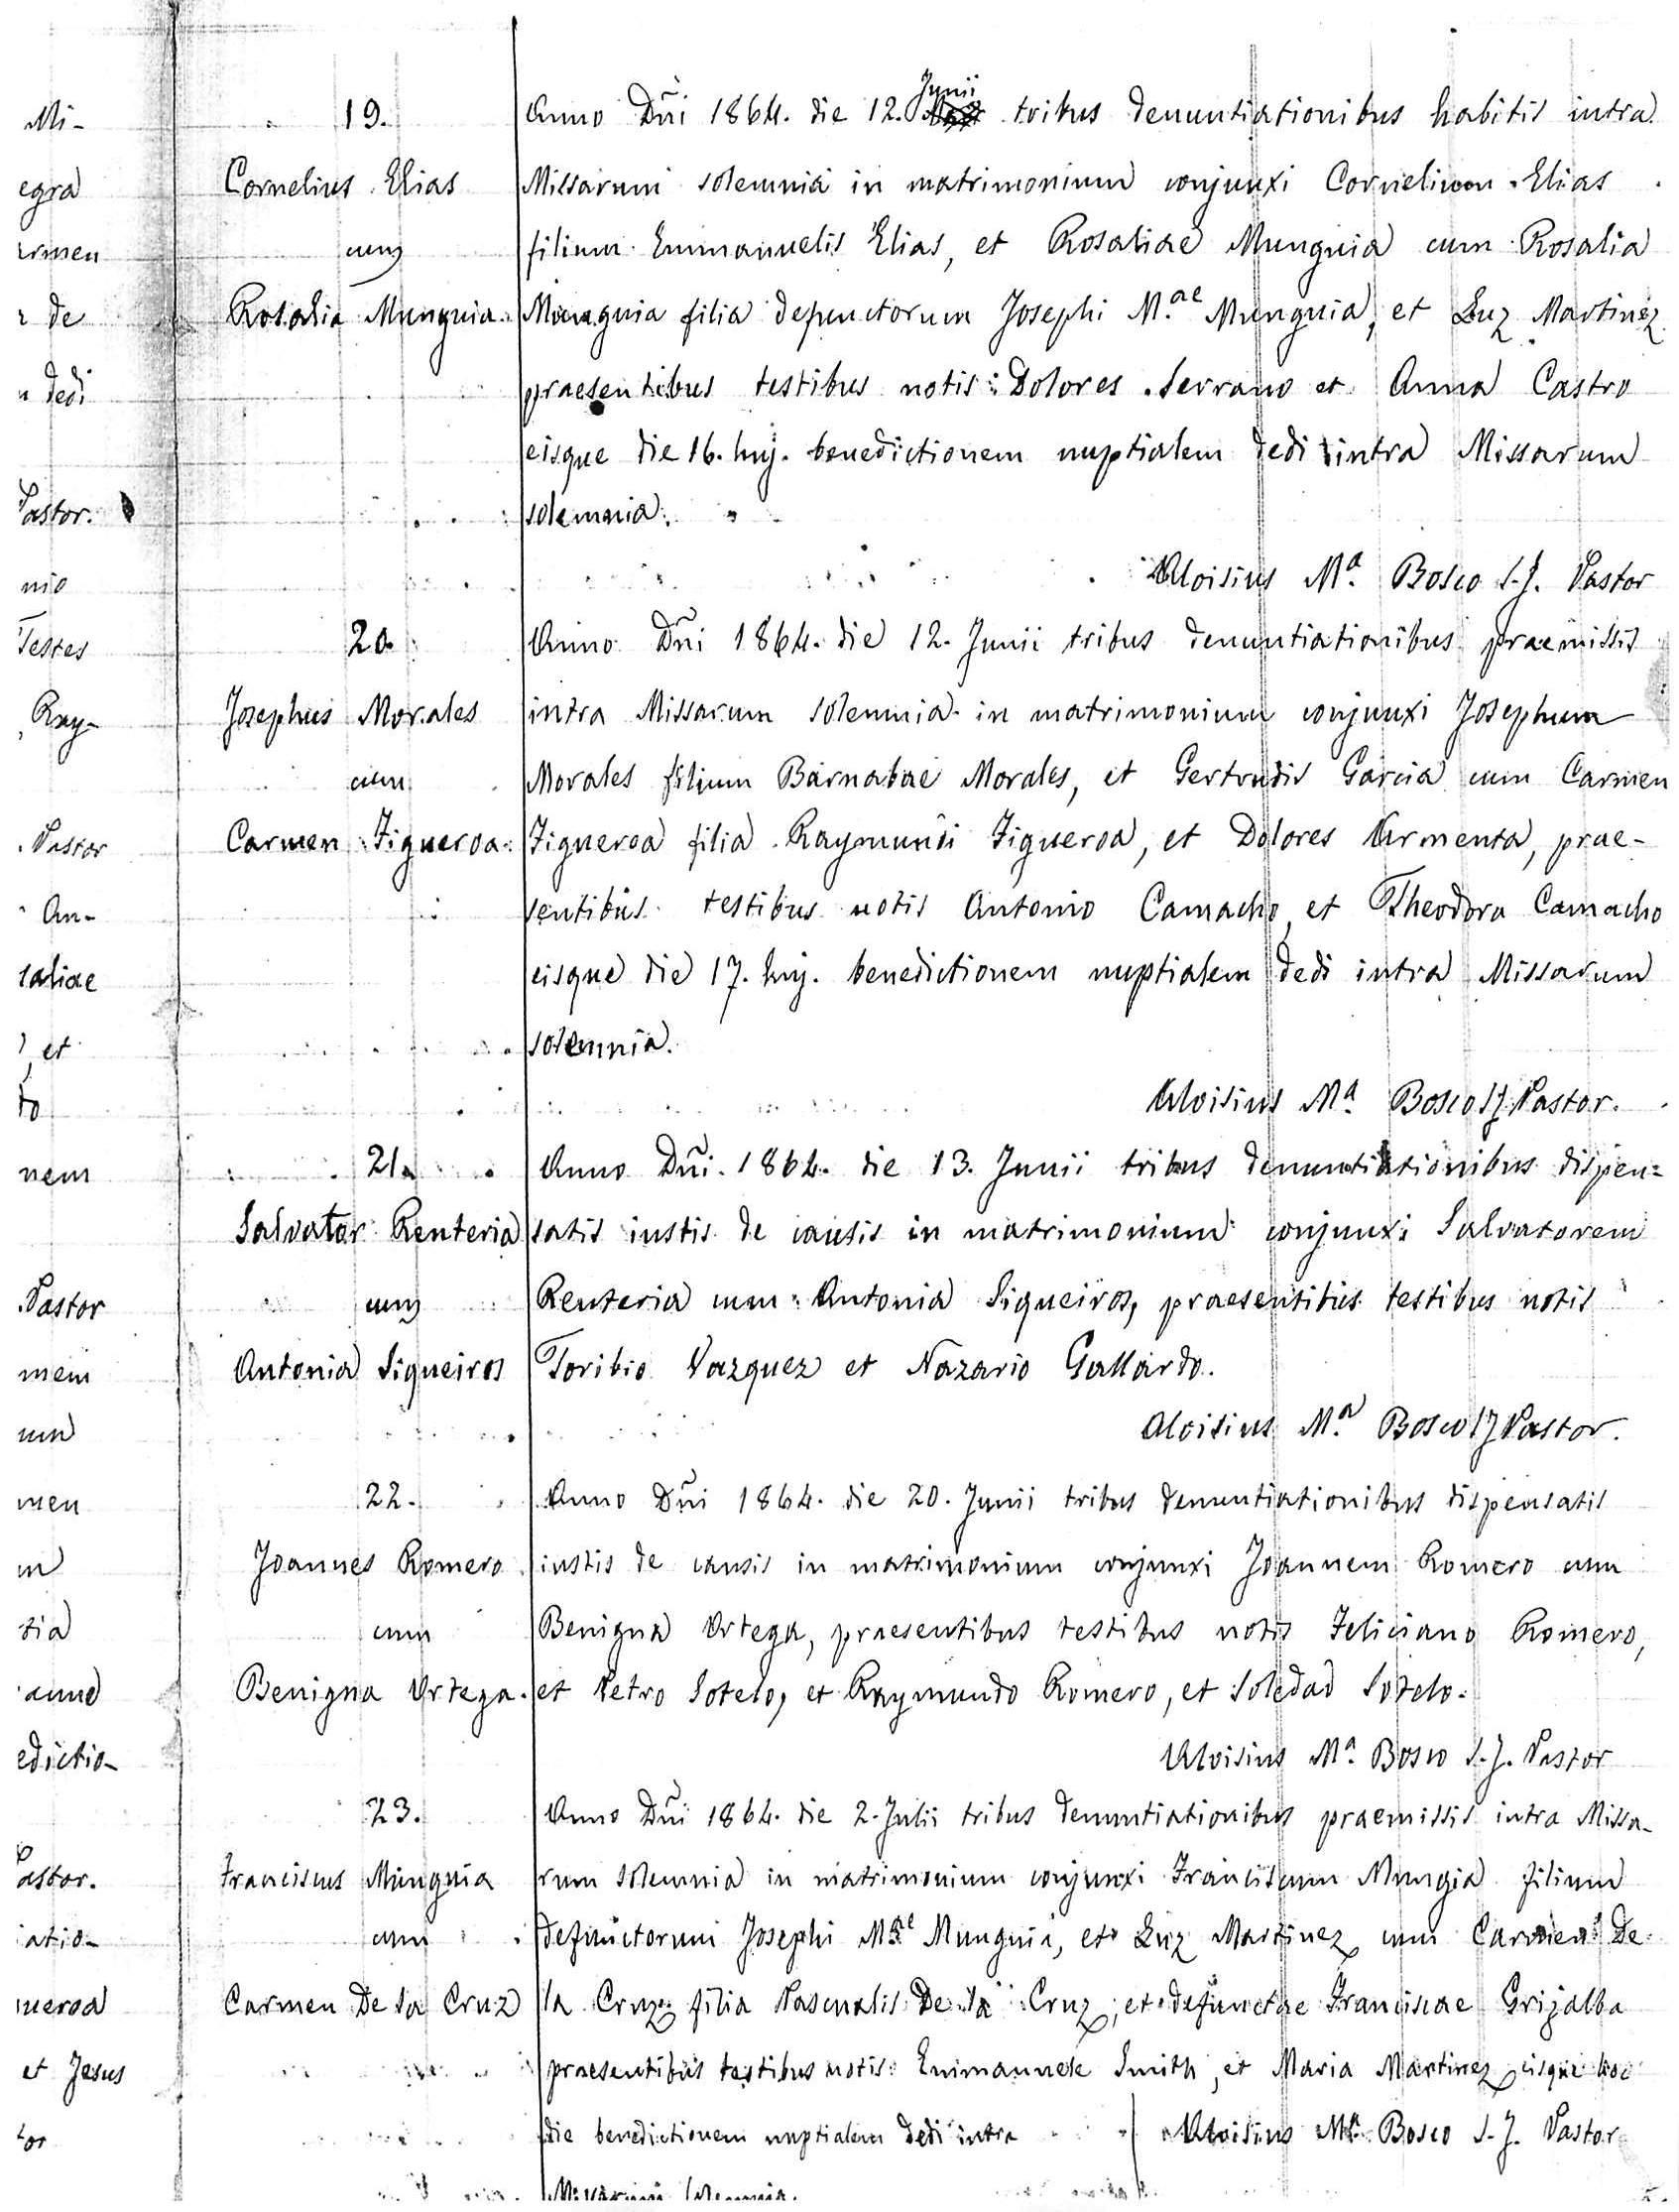 Mi-
egra
rmen
de
dedi
Pastor.
nio
Testes
Ray-
Pastor
An-
saliae
, et
to
nem
Pastor
mem
um
men
m
tia
anne
edictio-
Pastor.
iatio-
ueroa
et Jesus
tor
19.
Anno Dñi 1864. die 12. Junii tribus denuntiationibus habitis intra
Cornelius Elias
Missarum solemnia in matrimonium conjunxi Cornelium Elias
cum
filium Emmanuelis Elias, et Rosaliae Munguia cum Rosalia
Rosalia Munguia.
Munguia filia defunctorum Josephi M.ae Munguia, et Luz Martinez
praesentibus testibus notis: Dolores Serrano et Anna Castro
eisque die 16. huj. benedictionem nuptialem dedi intra Missarum
solemnia.
Aloisius Ma. Bosco S.J. Pastor
20.
Anno Dñi 1864. die 12. Junii tribus denuntiationibus praemissis
Josephus Morales
intra Missarum solemnia in matrimonium conjunxi Josephum
cum
Morales filium Barnabae Morales, et Gertrudis Garcia cum Carmen
Carmen Figueroa.
Figueroa filia Raymundi Figueroa, et Dolores Armenta, prae-
sentibus testibus notis Antonio Camacho, et Theodora Camacho
eisque die 17. huj. benedictionem nuptialem dedi intra Missarum
solemnia.
Aloisius Ma. Bosco SJ Pastor.
21.
Anno Dñi. 1864. die 13. Junii tribus denuntiationibus dispen=
Salvator Renteria
satis iustis de causis in matrimonium conjunxi Salvatorem
cum
Renteria cum Antonia Siqueiros, praesentibus testibus notis
Antonia Siqueiros
Toribio Vazquez et Nazario Gallardo.
Aloisius Ma. Bosco SJ Pastor.
22.
Anno Dñi 1864. die 20. Junii tribus denuntiationibus dispensatis
Joannes Romero
iustis de causis in matrimonium conjunxi Joannem Romero cum
cum
Benigna Ortega, praesentibus testibus notis Feliciano Romero,
Benigna Ortega.
et Petro Sotelo, et Raymundo Romero, et Soledad Sotelo.
Aloisius Ma. Bosco S.J. Pastor
23.
Anno Dñi 1864. die 2. Julii tribus denuntiationibus praemissis intra Missa-
Franciscus Munguia
rum solemnia in matrimonium conjunxi Franciscum Mungia filium
cum
defunctorum Josephi Mae Munguia, et Luz Martinez cum Carmen De
Carmen De la Cruz
la Cruz filia Pascualis De la Cruz, et defunctae Franciscae Grijalba
praesentibus testibus notis: Emmanuele Smith, et Maria Martinez, eisque hoc
die benedictionem nuptialem dedi intra
Aloisius Ma. Bosco S.J. Pastor
Missarum solemnia.